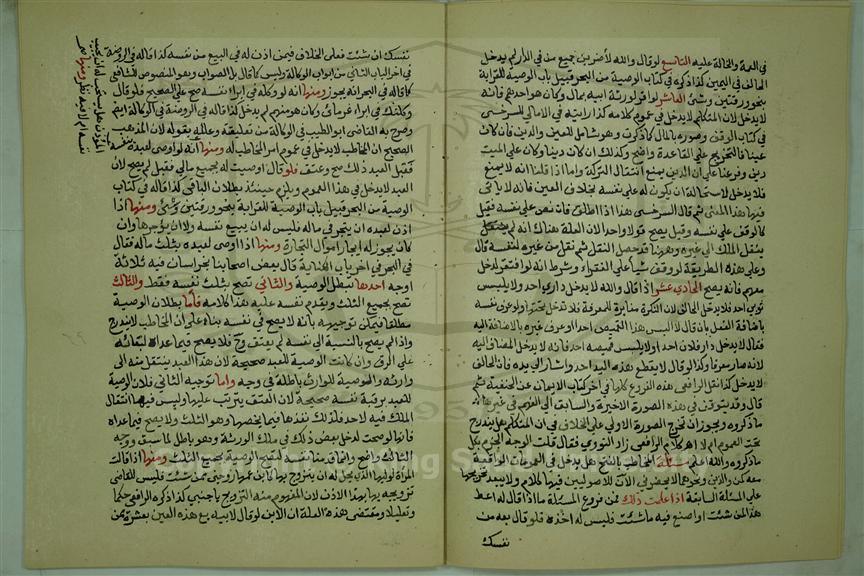 في العمة والخالة عليه التاسع لو قال والله لأضربن جميع من في الدار لم يدخل
الحالف في اليمين كذا ذكره في كتاب الوصية من البحر قبيل باب الوصية للقرابة
بنحو ورقتين وشيء العاشر لو اقر لورثة ابيه بمال وكان هو احدهم فانه
لا يدخل لان المتكلم لا يدخل في عموم كلامه كذا رأيته في الامالي للسرخسي
في كتاب الرق وصوره بالمال كما ذكرت وهو شامل للعين والدين فان كان
عينا فالتخريج على القاعدة واضح وكذلك ان كان دينا وكان على الميت
دين وفرعنا على ان الدين يمنع انتقال التركة واما اذا قلنا انه لا يمنع
فلا يدخل لاستحالة ان يكون له على نفسه بخلاف العين فانه لا يأتي
فيها هذا المعنى ثم قال السرخسي هذا اذا اطلق فان نص على نفسه فقيل
كالوقف على نفسه وقيل يصح قولا واحدا لان العلة هناك انه لم
ينتقل الملك الى غيره وههنا قد حصل النقل ثم نقل من غيره لنفسه قال
وعلى هذه الطريقة لو وقف شيأ على الفقراء وشرط انه لو افتقر لدخل
معهم فانه يصح الحادي عشر اذا قال والله لا يدخل داري احد ولا يلبس
ثوبي احد فلا يدخل الحالف لان النكرة مغايرة للمعرفة فلا تدخل تحتها ولو عرف نفسه
باضافة الفعل بان قال لا البس هذا القميص احدا او عرف غيره بالاضافة اليه
فقال لا يدخل دار فلان احد او لا يلبس قميصه احد فانه لا يدخل المضاف اليه
لانه صار معروفا وكذا لو قال لا يقطع هذه اليد احد واشار الى يده فان الحالف
لا يدخل كذا نقل الرافعي هذه الفروع كلها في اخر كتاب الايمان عن الحنفية ثم
قال وقد يتوقف في هذه الصورة الاخيرة والسابق الى الفهم في غيرها
ما ذكروه ويجوز ان تخرج الصورة الاولى على الخلاف في ان المتكلم هل يندرج
تحت العموم ام لا اهـ كلام الرافعي زاد النووي فقال قلت الوجه الجزم بكل
ما ذكروه والله اعلم مسئلة المخاطب بالفتح هل يدخل في العمومات الواقعة
معه
على المسئلة السابقة اذا علمت ذلك فمن فروع المسئلة ما اذا قال له اعط
هذا لمن شئت او اصنع فيه ما شئت فليس له اخذه فلو قال بعه من
نفسك
نفسك ان شئت فعلى الخلاف فيمن اذن له في البيع من نفسه كذا قاله في الروضة
في اخر الباب الثاني من ابواب الوكالة وليس كما قال بل الصواب وهو المنصوص للشافعي
كما قاله في البحر انه يجوز ومنها انه لو وكله في ابراء نفسه صح على الصحيح فلو قال
وكلتك في ابراء غرمائي وكان هو منهم لم يدخل كذا قاله في الروضة في الوكالة ايضا
وصرح به القاضي ابو الطيب في الوكالة من تعليقه وعلله بقوله لان المذهب
الصحيح ان المخاطب لا يدخل في عموم امر المخاطب له ومنها انه لو اوصى لعبده بنفسه
فقبل العبد ذلك صح وعتق فلو قال اوصيت له بجميع مالي فقبل لم يصح لان
العبد لا يدخل في هذا العموم ويلزم حينئذ بطلان الباقي كذا قاله في كتاب
الوصية من البحر قبيل باب الوصية للقرابة بنحو ورقتين وشيء ومنها اذا
اذن لعبده ان يتجر في ماله فليس له ان يبيع نفسه ولا ان يؤجرها وان
كان يجوز له ايجار اموال التجارة ومنها اذا اوصى لعبده بثلث ماله فقال
في البحر في اخر باب الكتابة قال بعض اصحابنا بخراسان فيه ثلاثة
اوجه احدها تبطل الوصية والثاني تصح بثلث نفسه فقط والثالث
تصح بجميع الثلث ويقدم نفسه عليه هذا كلامه فأما بطلان الوصية
مطلقا فيمكن توجيهه بانه لا يصح في نفسه بناء على ان المخاطب لا يندرج
واذا لم يصح بالنسبة الى نفسه لم يعتق وح فلا يصح فيما عداه لبقائه
على الرق وان كانت الوصية للعبد صحيحة لان هذا العبد ينتقل منه الى
وارثه والوصية للوارث باطلة في وجه واما توجيه الثاني فلان الوصية
للعبد برقبة نفسه صحيحة لان العتق يترتب عليها وليس فيها انتقال
الملك فيه لاحد فلذلك نفذها فيما يخصها وهو الثلث ولا يصح فيما عداه
فانها لو صحت لدخل بعض ذلك في ملك الورثة وهو باطل لما سبق ووجه
الثالث واضح ومنها اذا قالت
المرأة لوليها الذي يحل له ان يتزوج بها كابن عمها زوجني ممن شئت فليس للقاضي
تزويجه بها بهذا الاذن لان المفهوم منه التزويج باجنبي كذا ذكره الرافعي حكما
وتعليلا ومقتضى هذه العلة ان الابن لو قال لابيه بع هذه العين بعشرة ممن